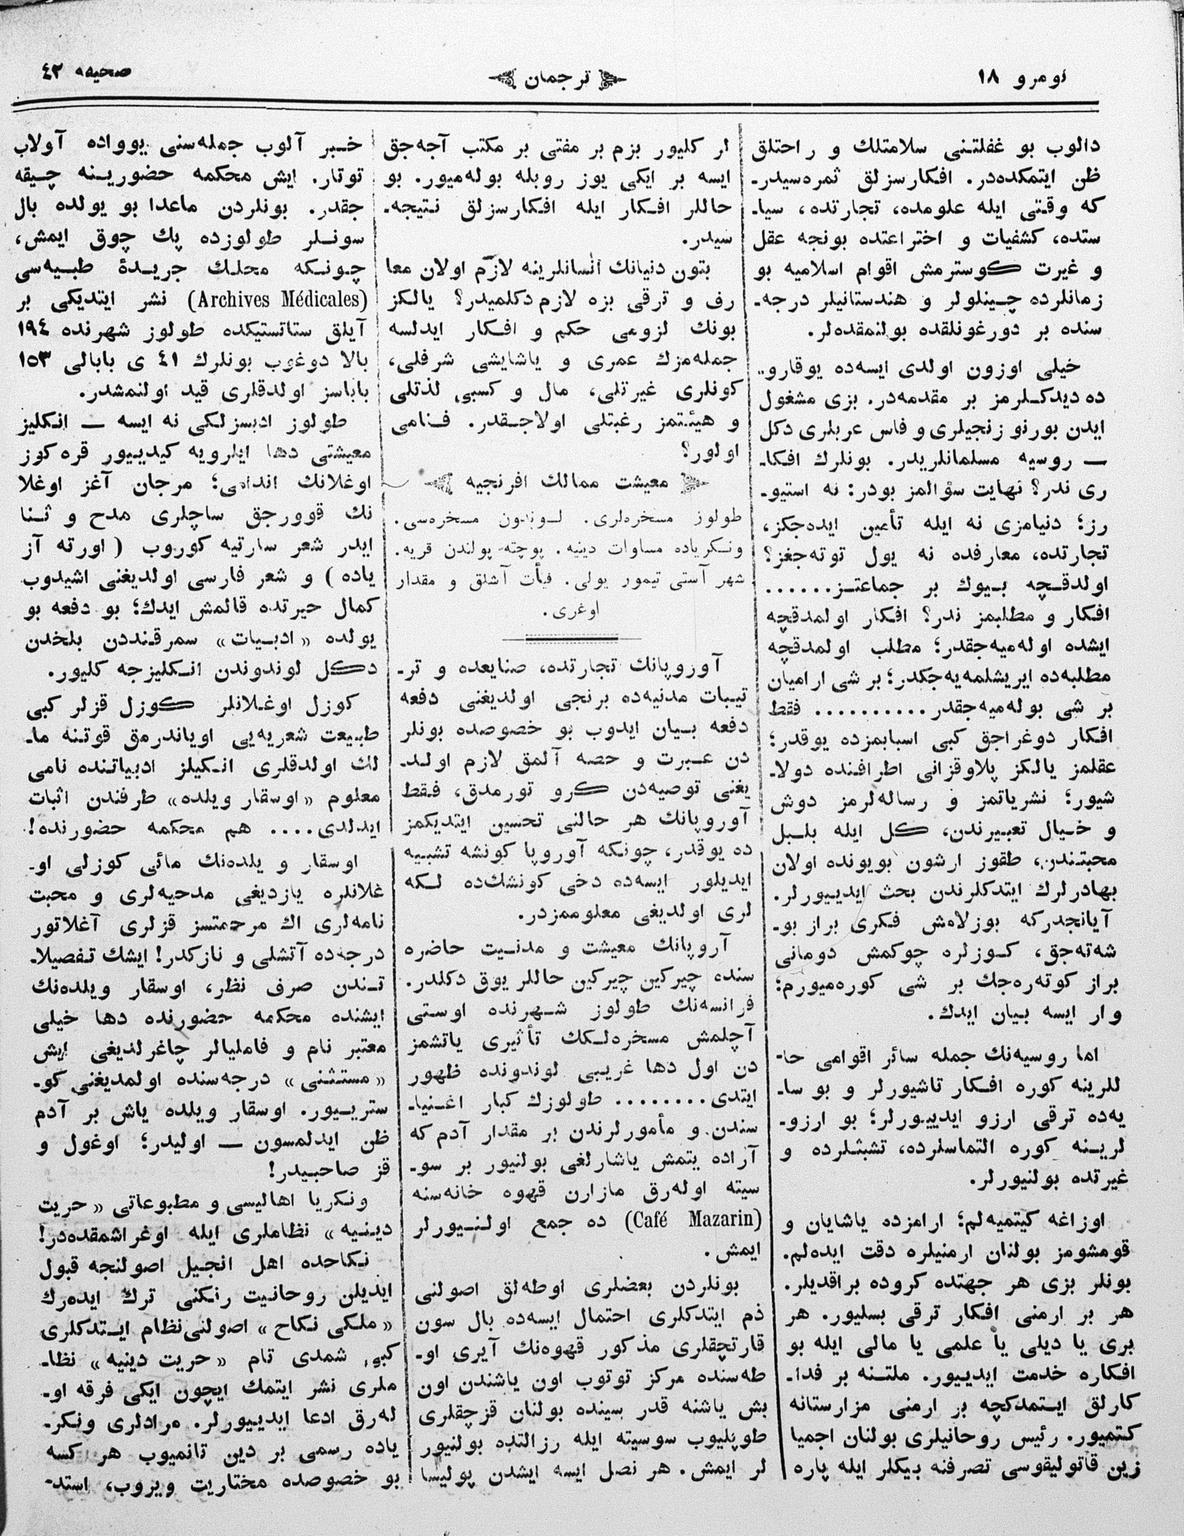 نومرو ١٨
ترجمان
صحیفه ٤٣
دالوب بو غفلتنی سلامتلك و راحتلق
ظن ایتمكده‌در. افكارسزلق ثمره‌سیدر-
كه وقتی ایله علومده، تجارتده، سیا-
ستده، كشفیات و اختراعتده بونجه عقل
و غیرت كوسترمش اقوام اسلامیه بو
زمانلرده چینلولر و هندستانیلر درجه-
سنده بر دورغونلقده بولنمقده‌لر.
خیلی اوزون اولدی ایسه‌ده یوقارو-
ده دیدكلرمز بر مقدمه‌در. بزی مشغول
ایدن بورنو زنجیلری و فاس عربلری دكل
— روسیه مسلمانلریدر. بونلرك افكا-
ری ندر؟ نهایت سؤالمز بودر: نه استیو-
رز؛ دنیامزی نه ایله تأمین ایده‌جكز،
تجارتده، معارفده نه یول توته‌جغز؟
اولدقچه بیوك بر جماعتز......
افكار و مطلبمز ندر؟ افكار اولمدقچه
ایشده اوله‌میه‌جقدر؛ مطلب اولمدقچه
مطلبه‌ده ایریشلمه‌یه‌جكدر؛ بر شی ارامیان
بر شی بوله‌میه‌جقدر.......... فقط
افكار دوغراجق كبی اسبابمزده یوقدر؛
عقلمز یالكز پلاوقزانی اطرافنده دولا-
شیور؛ نشریاتمز و رساله‌لرمز دوش
و خیال تعبیرندن، كل ایله بلبل
محبتندن، طقوز ارشون بویونده اولان
بهادرلرك ایتدكلرندن بحث ایدییورلر.
آیانجدركه بوزلامش فكری براز بو-
شه‌ته‌جق، كوزلره چوكمش دومانی
براز كوته‌ره‌جك بر شی كوره‌میورم؛
وار ایسه بیان ایدك.
اما روسیه‌نك جمله سائر اقوامی حا-
للرینه كوره افكار تاشیورلر و بو سا-
یه‌ده ترقی ارزو ایدییورلر؛ بو ارزو-
لرینه كوره التماسلرده، تشبثلرده و
غیرتده بولنیورلر.
اوزاغه كیتمیه‌لم؛ ارامزده یاشایان و
قومشومز بولنان ارمنیلره دقت ایده‌لم.
بونلر بزی هر جهتده كروده براقدیلر.
هر بر ارمنی افكار ترقی بسلیور. هر
بری یا دیلی یا علمی یا مالی ایله بو
افكاره خدمت ایدییور. ملتنه بر فدا-
كارلق ایتمدكچه بر ارمنی مزارستانه
كتمیور. رئیس روحانیلری بولنان اجمیا
زین قاتولیقوسی تصرفنه بیكلر ایله پاره
لر كلیور بزم بر مفتی بر مكتب آچه‌جق
ایسه بر ایكی یوز روبله بوله‌میور. بو
حاللر افكار ایله افكارسزلق نتیجه-
سیدر.
بتون دنیانك انسانلرینه لازم اولان معا
رف و ترقی بزه لازم دكلمیدر؟ یالكز
بونك لزومی حكم و افكار ایدلسه
جمله‌مزك عمری و یاشایشی شرفلی،
كونلری غیرتلی، مال و كسبی لذتلی
و هیئتمز رغبتلی اولاجقدر. فنامی
اولور؟
معیشت ممالك افرنجیه
طولوز مسخره‌لری. لوندون مسخره‌سی.
ونكریاده مساوات دینیه. پوچته-پولندن قریه.
شهر آستی تیمور یولی. فیأت آشلق و مقدار
اوغری.
آوروپانك تجارتده، صنایعده و تر-
تیبات مدنیه‌ده برنجی اولدیغنی دفعه
دفعه بیان ایدوب بو خصوصده بونلر
دن عبرت و حصه آلمق لازم اولد-
یغنی توصیه‌دن كرو تورمدق، فقط
آوروپانك هر حالنی تحسین ایتدیكمز
ده یوقدر، چونكه آوروپا كونشه تشبیه
ایدیلور ایسه‌ده دخی كونشك‌ده لكه
لری اولدیغی معلوممزدر.
آروپانك معیشت و مدنیت حاضره
سنده چیركین چیركین حاللر یوق دكلدر.
فرانسه‌نك طولوز شهرنده اوستی
آچلمش مسخره‌لكك تأثیری یاتشمز
دن اول دها غریبی لوندونده ظهور
ایتدی........ طولوزك كبار اغنیا-
سندن و مأمورلرندن بر مقدار آدم كه
آراده یتمش یاشارلغی بولنیور بر سو-
سیته اوله‌رق مازارن قهوه خانه‌سنه
(Café Mazarin) ده جمع اولنیورلر
ایمش.
بونلردن بعضلری اوطه‌لق اصولنی
ذم ایتدكلری احتمال ایسه‌ده بال سون
قارتچقلری مذكور قهوه‌نك آیری او-
طه‌سنده مركز توتوب اون یاشندن اون
بش یاشنه قدر سینده بولنان قزچقلری
طوپلیوب سوسیته ایله رزالتده بولنیور
لر ایمش. هر نصل ایسه ایشدن پولیسا
خبر آلوب جمله‌سنی یوواده آولاب
توتار. ایش محكمه حضورینه چیقه
جقدر. بونلردن ماعدا بو یولده بال
سونلر طولوزده پك چوق ایمش،
چونكه محلك جریدهٔ طبیه‌سی
(Archives Médicales) نشر ایتدیكی بر
آیلق ستاتستیكده طولوز شهرنده ١٩٤
بالا دوغوب بونلرك ٤١ ی بابالی ١٥٣
باباسز اولدقلری قید اولنمشدر.
طولوز ادبسزلكی نه ایسه — انكلیز
معیشتی دها ایلرویه كیدییور قره كوز
اوغلانك اندامی؛ مرجان آغز اوغلا
نك قوورجق ساچلری مدح و ثنا
ایدر شعر سارتیه كوروب (اورته آز
یاده) و شعر فارسی اولدیغنی اشیدوب
كمال حیرتده قالمش ایدك؛ بو دفعه بو
یولده «ادبیات» سمرقنددن بلخدن
دكل لوندوندن انكلیزجه كلیور.
كوزل اوغلانلر كوزل قزلر كبی
طبیعت شعریه‌یی اویاندرمق قوتنه ما-
لك اولدقلری انكیلز ادبیاتنده نامی
معلوم «اوسقار ویلده» طرفندن اثبات
ایدلدی.... هم محكمه حضورنده!
اوسقار و یلده‌نك مائی كوزلی او-
غلانلره یازدیغی مدحیه‌لری و محبت
نامه‌لری اك مرحمتسز قزلری آغلاتور
درجه‌ده آتشلی و نازكدر! ایشك تفصیلا-
تندن صرف نظر، اوسقار ویلده‌نك
ایشنده محكمه حضورنده دها خیلی
معتبر نام و فامیلیالر چاغرلدیغی ایش
«مستثنی» درجه‌سنده اولمدیغنی كو-
ستریور. اوسقار ویلده یاش بر آدم
ظن ایدلمسون — اولیدر؛ اوغول و
قز صاحبیدر!
ونكریا اهالیسی و مطبوعاتی «حریت
دینیه» نظاملری ایله اوغراشمقده‌در!
نكاحده اهل انجیل اصولنجه قبول
ایدیلن روحانیت رنكنی ترك ایده‌رك
«ملكی نكاح» اصولنی نظام ایتدكلری
كبی، شمدی تام «حریت دینیه» نظا-
ملری نشر ایتمك ایچون ایكی فرقه او-
له‌رق ادعا ایدییورلر. مرادلری ونكر-
یاده رسمی بر دین تانمیوب هر كسه
بو خصوصده مختاریت ویروب، استد-